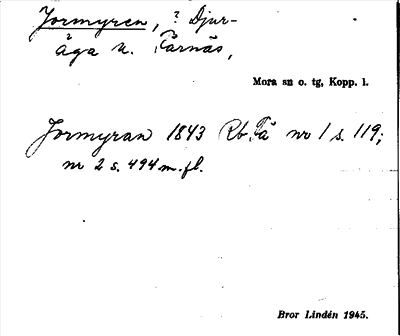 Jormyren, ? Djur-
åga n. Färnäs,
Mora sn o. tg, Kopp. l.
Jormyran 1843 Rb. Fä nr 1 s. 119;
nr 2 s. 494 m. fl.
Bror Lindén 1945.